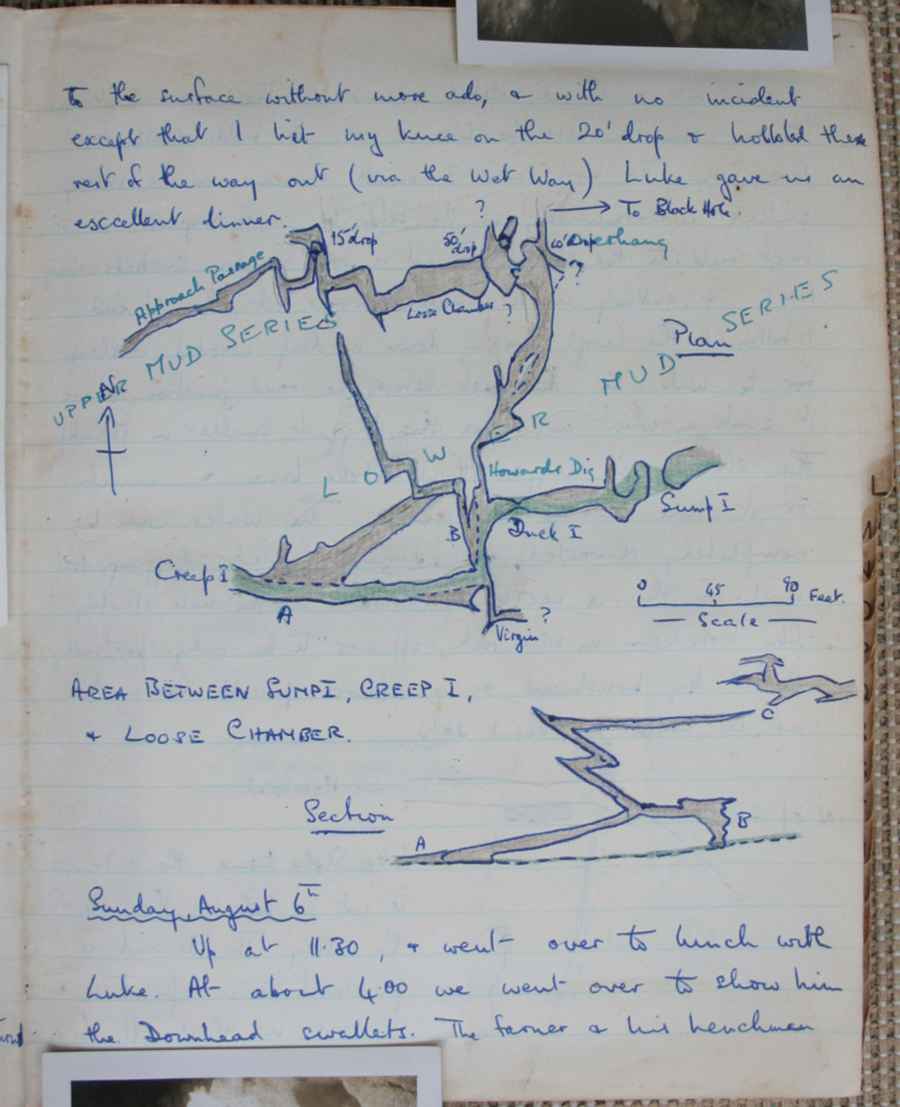 To the surface without more ado, & with no incident
except that I hit my knee on the 20' drop & hobbled the
rest of the way out (via the Wet Way) Luke gave us an
esccellent dinner.
?
→ To Black Hole.
15' drop
50' drop
60' drop
Overhang
? ?
Approach Passage
Loose Chamber
?
UPPER MUD SERIES
Plan
N
LOWER MUD SERIES
Howards Dig
B
Duck I
Sump I
Creep I
A
0 45 90 Feet.
— Scale —
?
Virgin
AREA BETWEEN SUMP I, CREEP I,
& LOOSE CHAMBER.
C
Section
A
B
Sunday, August 6th
Up at 11.30, & went over to lunch with
Luke. At about 4.00 we went over to show him
the Downhead swallets. The farmer & his henchman